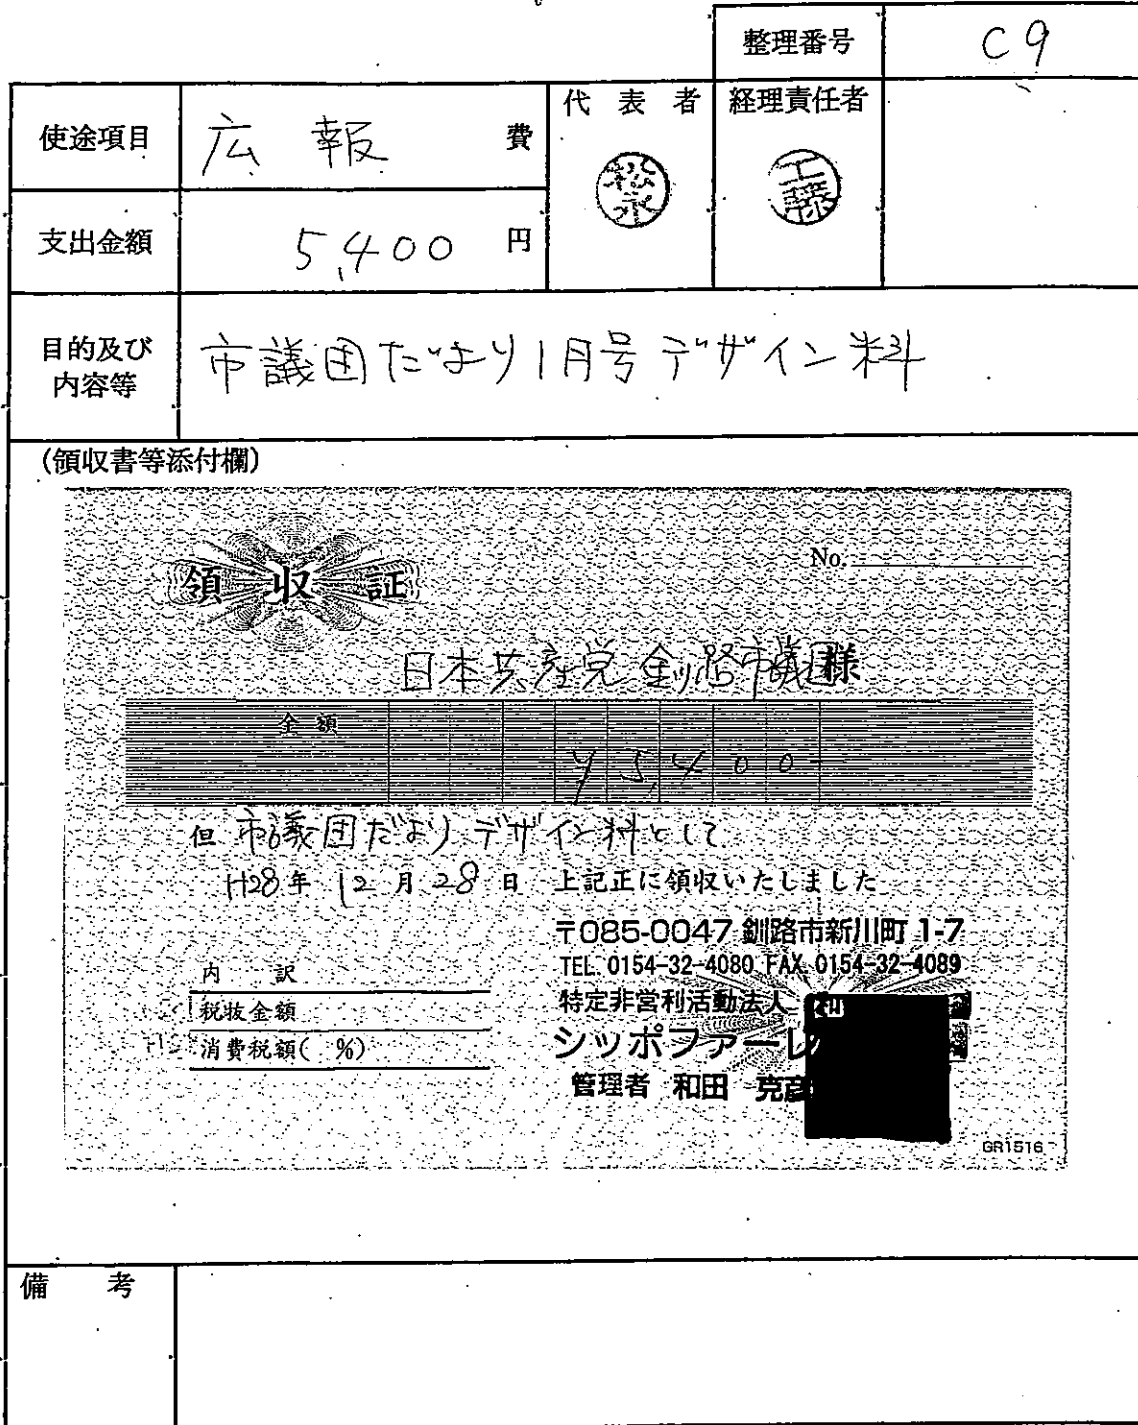 整理番号 C9
使途項目 広報 費
代表者 経理責任者
松永 工藤
支出金額 5,400 円
目的及び内容等 市議団だより1月号デザイン料
(領収書等添付欄)
領収証
No.
日本共産党釧路市議団様
金額 ¥5,400
但 市議団だよりデザイン料として
H28年 12月28日 上記正に領収いたしました
〒085-0047 釧路市新川町1-7
TEL. 0154-32-4080 FAX 0154-32-4089
内訳
特定非営利活動法人
税抜金額
シッポファーレ
消費税額( %)
管理者 和田 克彦
GR1516
備考